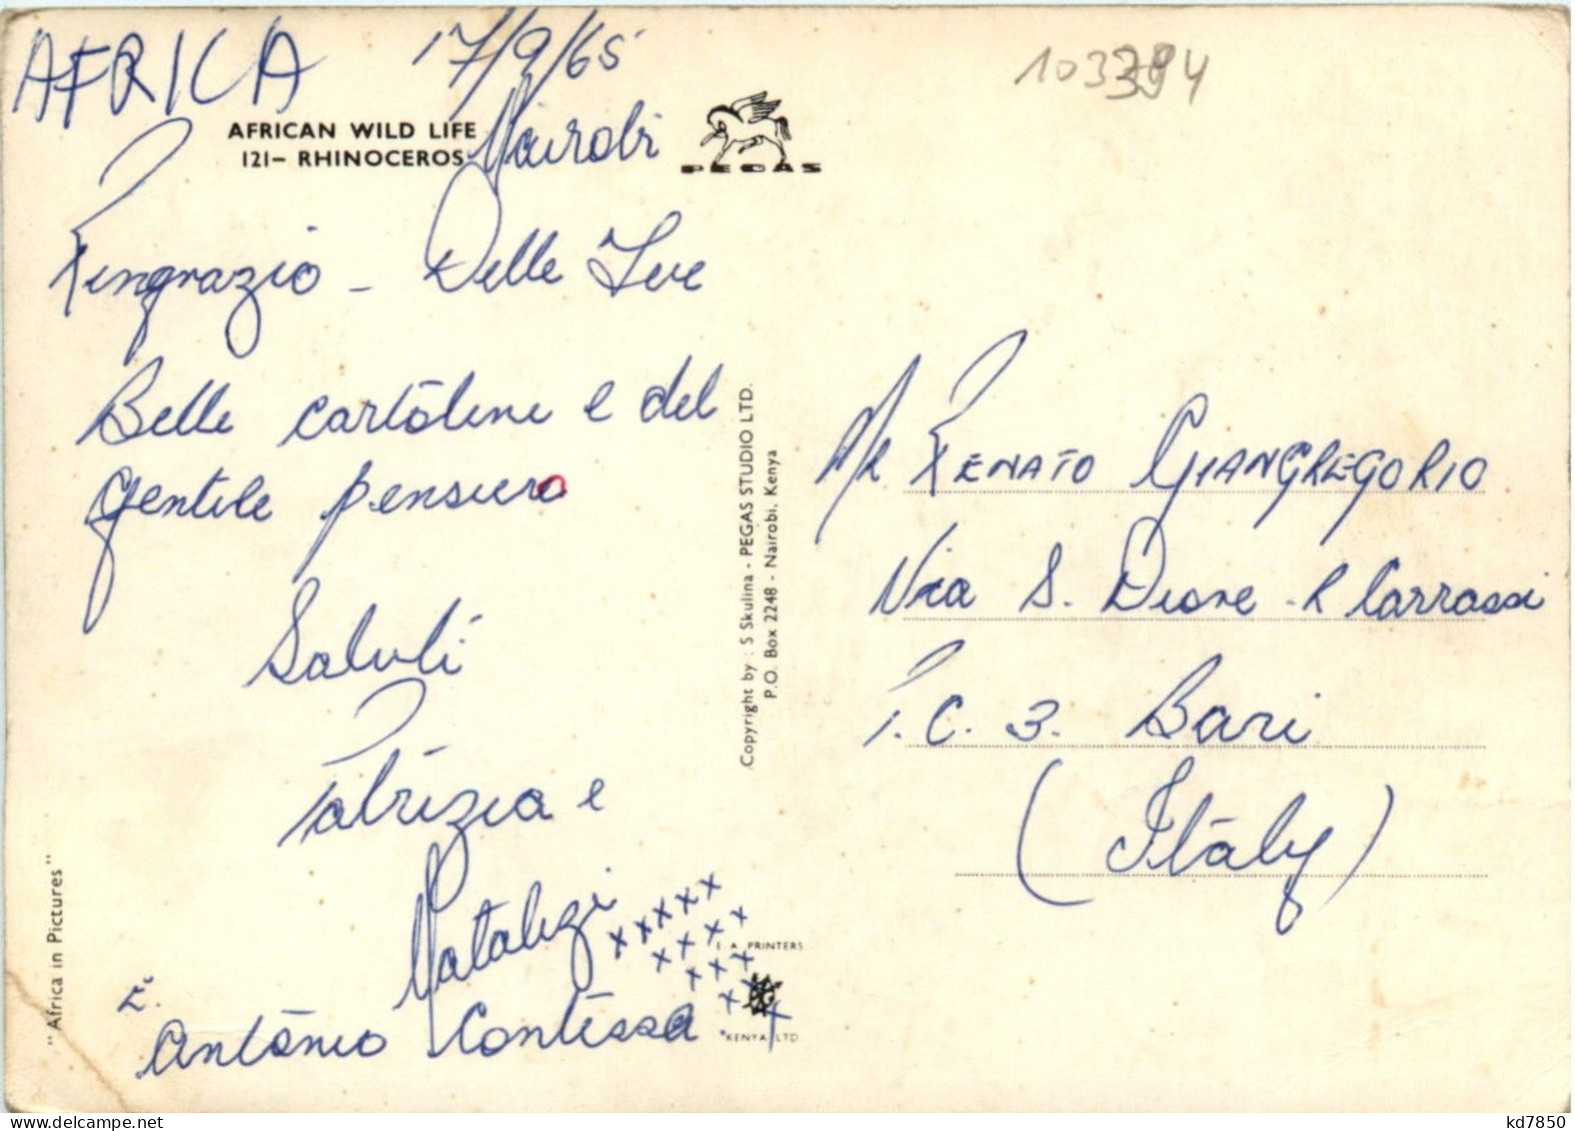 AFRICA 17/9/65
Nairobi
AFRICAN WILD LIFE
121– RHINOCEROS
PEGAS
103394
Ringrazio - Delle Sue
Belle cartoline e del
gentile pensiero
Saluti
Patrizia e
Natalizi
xxxxx
xxxx
xxx
E.
Antonio Contessa
"Africa in Pictures"
Copyright by : S Skulina - PEGAS STUDIO LTD.
P.O. Box 2248 - Nairobi, Kenya
E. A. PRINTERS
KENYA LTD
Mr RENATO GIANGREGORIO
Via S. Dione - R Carrassi
P.C. 3. Bari
(Italy)
kd7850